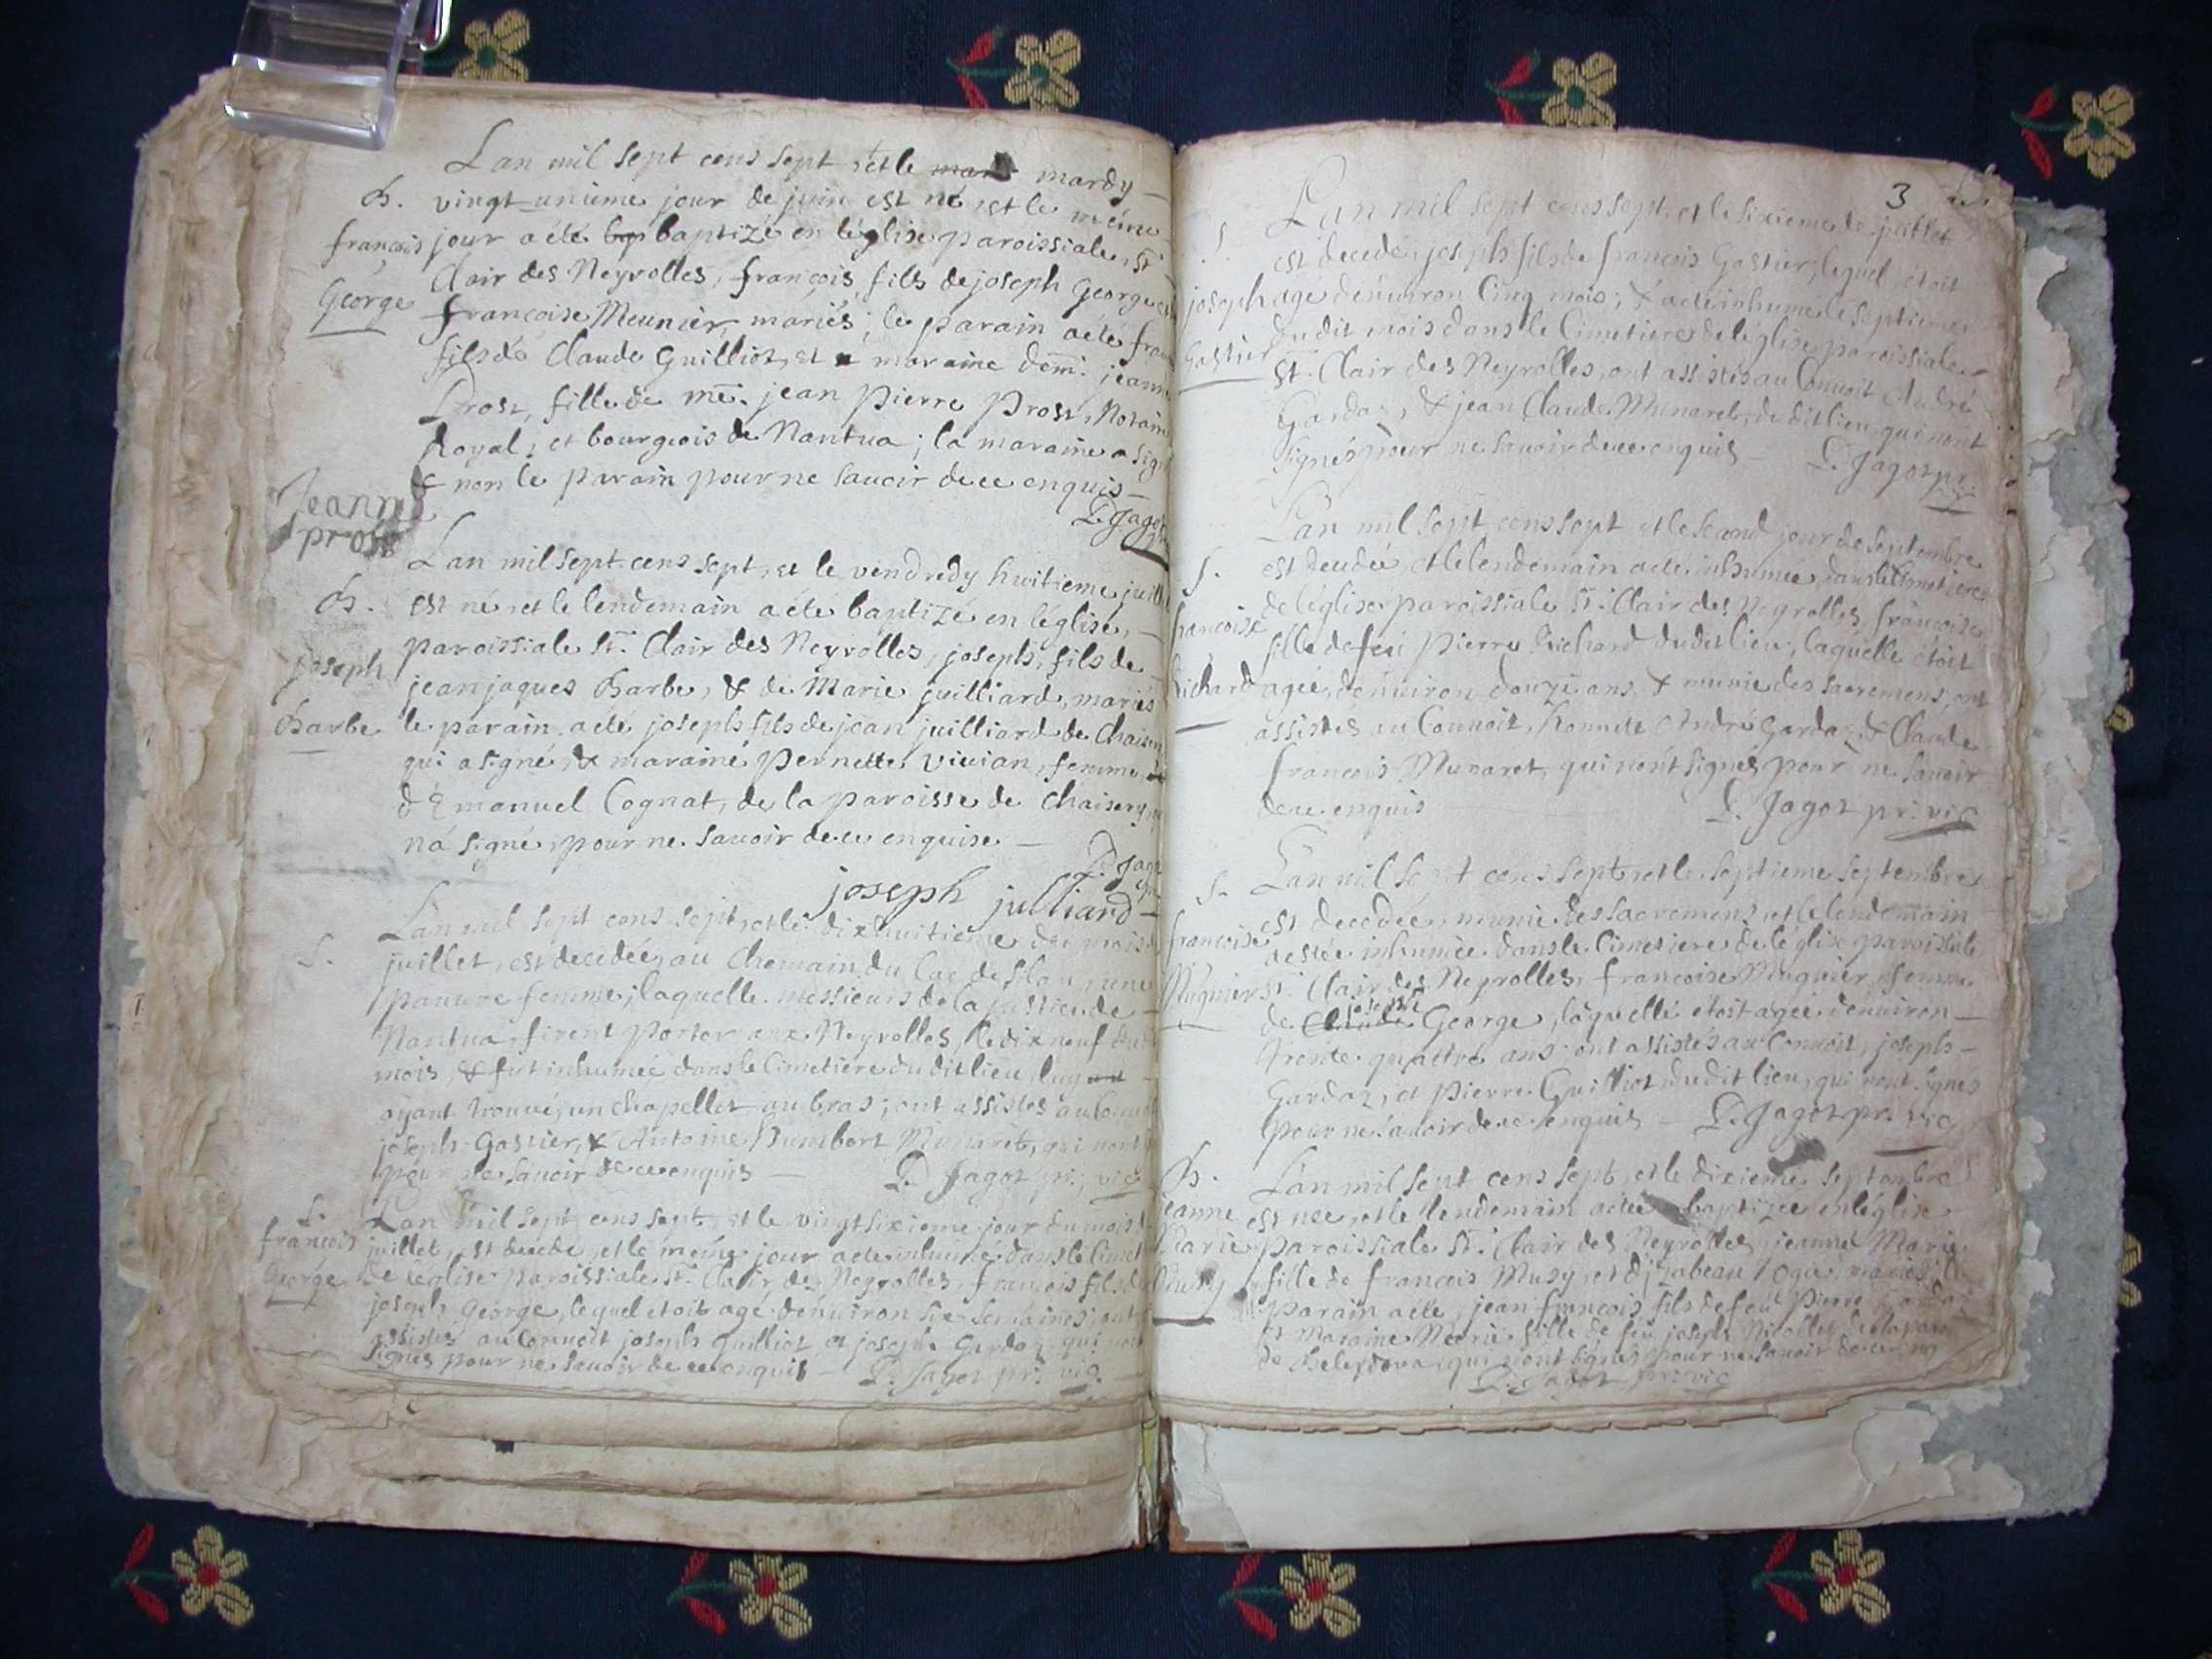 Lan mil sept cens sept, et le mardy
B. vingt unieme jour de juin est né et le méme
françois jour a été baptizé en léglise paroissiale St
Clair des Neyrolles, françois, fils de joseph George et
George françoise Meunier, mariés; le parain a été
fils de Claude Guilliot, et maraine dem. jeanne
Prost, fille de me. jean Pierre Prost, Notaire
Royal, et bourgeois de Nantua; la maraine a signé
& non le parain pour ne sauoir de ce enquis
D. Jagot
Jeanne
prost
Lan mil sept cens sept, et le vendredy huitieme juillet
B. est né, et le lendemain a été baptizé en léglise,
paroissiale St. Clair des Neyrolles, joseph, fils de
joseph jean jaques Barbe, & de Marie juilliard, mariés
Barbe le parain a été joseph fils de jean juilliard de Chaisery
qui a signé, & maraine Pernette Viuian, femme
d'Emanuel Cognat, de la paroisse de Chaisery,
n'a signé, pour ne sauoir de ce enquise
D. Jagot
joseph julliard
S. Lan mil sept cens sept, et le dixhuitieme du mois
juillet, est decedée, au chemain du lac de Slan, une
pauure femme, laquelle messieurs de la justice de
Nantua firent porter aux Neyrolles, le dix neuf du
mois, & fut inhumée dans le Cimetiere du dit lieu, luy
ayant trouué un chapellet au bras; ont assistés au Conuoit
joseph Gastier, & Antoine Humbert Munaret, qui nont
pour ne sauoir de ce enquis D. Jagot pr. vic
S. Lan mil sept cens sept, et le vingt sixieme jour du mois
françois juillet, est decedé, et le méme jour a été inhumé dans le Cimet
George de léglise paroissiale St. Clair des Neyrolles, françois fils de
joseph George, lequel etoit agé denuiron six semaines; ont
assistés au Conuoit joseph Guilliot et joseph Gardaz qui nont
signés pour ne sauoir de ce enquis D. Jagot pr. vic.
3
Lan mil sept cens sept, et le sixieme de juillet
S. est decedé, joseph fils de francois Gastier, lequel étoit
joseph age denuiron Cinq mois; & a été inhumé le septieme
Gastier du dit mois dans le Cimetiere de léglise paroissiale
St. Clair des Neyrolles, ont assistés au Conuoit André
Gardaz, & jean Claude Munaret, du dit lieu qui nont
signés pour ne sauoir de ce enquis D. Jagot pr.
Lan mil sept cens sept et le second jour de septembre
S. est decedée, et le lendemain a été inhumée dans le Cimetiere
de léglise paroissiale St. Clair des Neyrolles, françoise
françoise fille de feu Pierre Richard du dit lieu, laquelle étoit
Richard agée, denuiron douze ans, & munie des sacremens, ont
assistés au Conuoit, honnête André Gardaz & Claude
françois Munaret, qui nont signés pour ne sauoir
de ce enquis D. Jagot pr. vic
Lan mil sept cens sept, et le septieme septembre
S. est decedée, munie des sacremens, et le lendemain
françoise a estée inhumée dans le Cimetiere de léglise paroissiale
Muguier St. Clair des Neyrolles, françoise Muguier, femme
joseph
de Claude George, laquelle étoit agée denuiron
trente quattre ans; ont assistés au Conuoit, joseph
Gardaz, et Pierre Guilliot du dit lieu, qui nont signés
pour ne sauoir de ce enquis D. Jagot pr. vic
B. Lan mil sept cens sept, et le dixieme septembre
jeanne est née, et le lendemain a été baptizée en léglise
Marie paroissiale St. Clair des Neyrolles jeanne Marie
Musy fille de francois Musy, et d'izabeau mariés; le
parain a été, jean françois fils de feu Pierre Gardaz
et maraine Marie fille de feu joseph Nicollet de la paro
de qui nont signés pour ne sauoir de ce enq
D. Jagot pr. vic